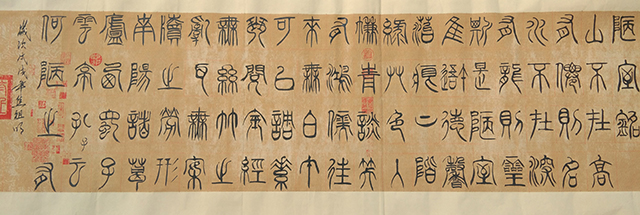 陋室銘
山不在高
有僊則名
水不在深
有龍則靈
斯是陋室
惟吾德馨
苔痕上階
綠艸色入
簾青談笑
有鴻儒往
來無白丁
可以調素
琴閱金經
無絲竹之
亂耳無案
牘之勞形
南陽諸葛
廬西蜀子
雲亭孔子云
何陋之有
歲次戊戌年